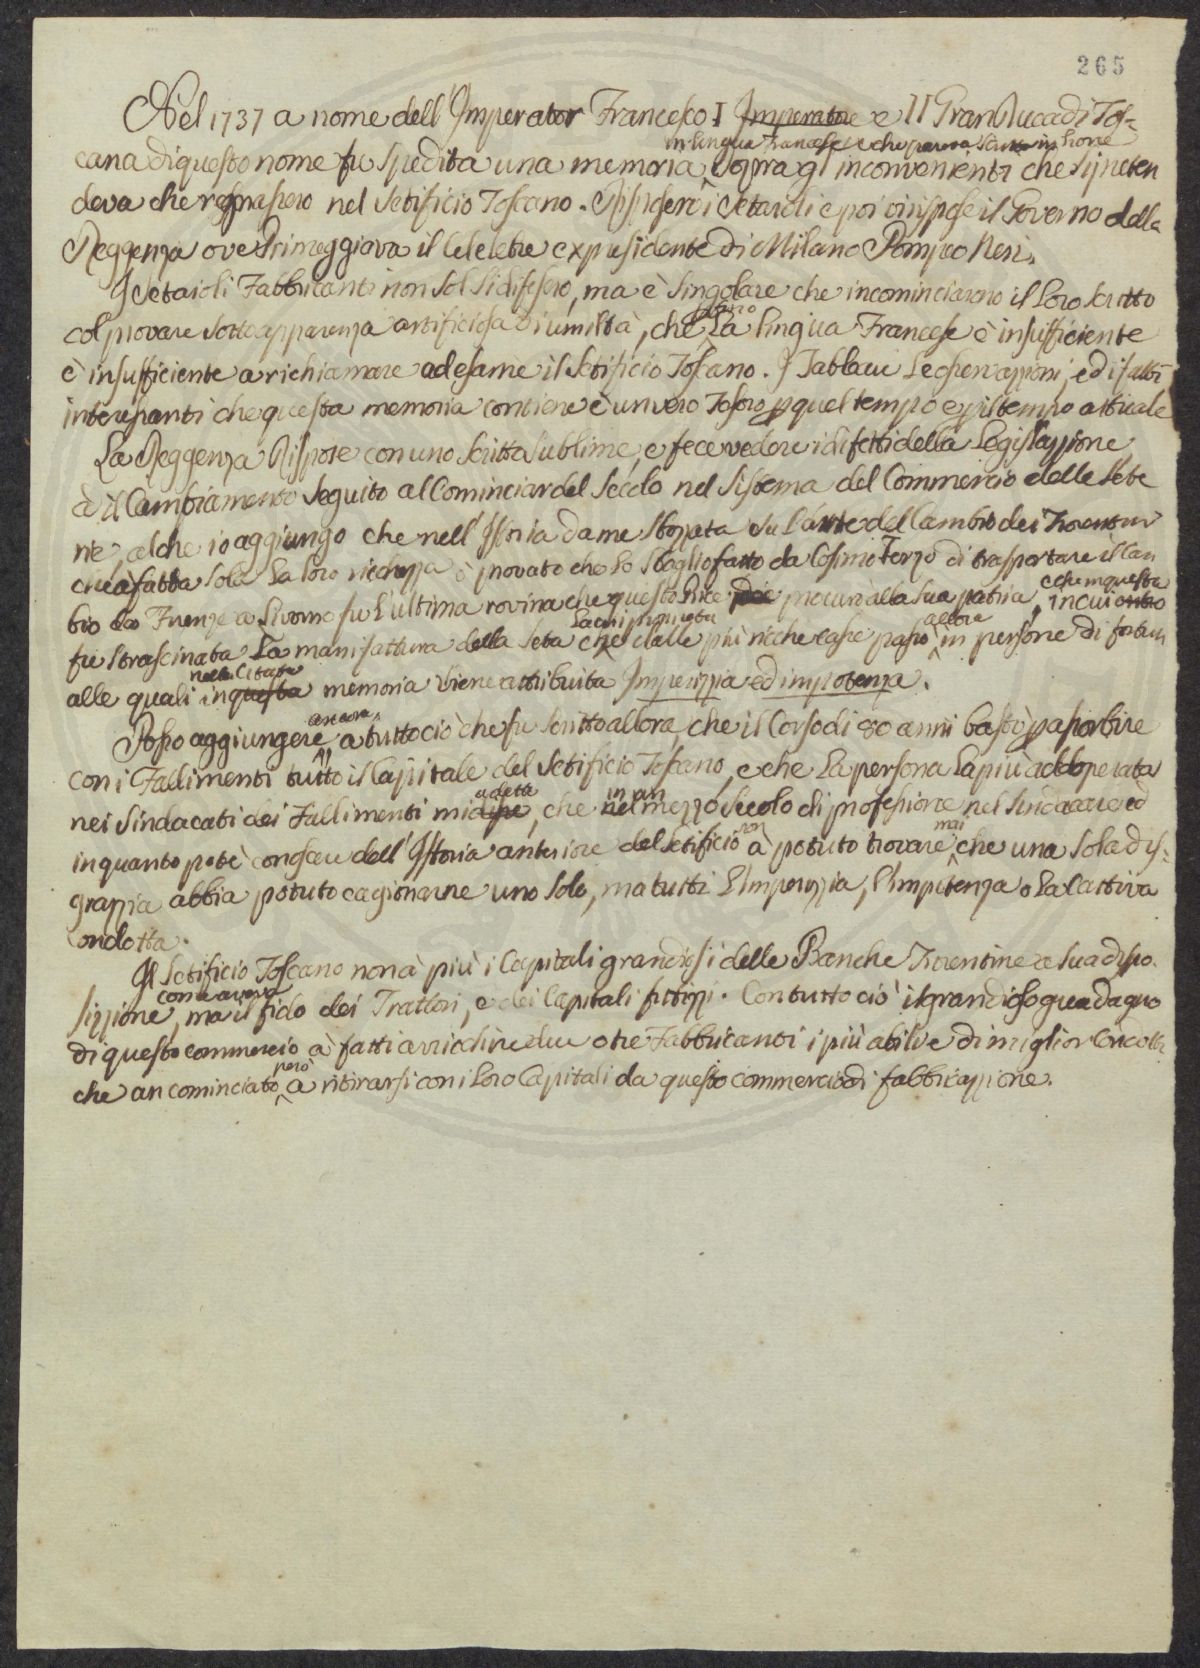 265
Nel 1737 a nome dell'Imperator Francesco I Imperatore e II Gran Duca di Tos=
in lingua Francese e che pareva scritta in Lione
cana di questo nome fu spedita una memoria sopra gl'inconvenienti che si preten
deva che regnassero nel Setificio Toscano. Risposero i Setaioli e poi rispose il Governo della
Reggenza ove Primeggiava il Celebre expresidente di Milano Pompeo Neri.
I Setaioli Fabbricanti non sol si difesero, ma è singolare che incominciarono il loro scritto
col provare sotto apparenza artificiosa di umiltà, che La lingua Francese è insufficiente
è insufficiente a richiamare ad esame il Setificio Toscano. I Tablaui Le osservazioni, ed i fatti
interessanti che questa memoria contiene è un vero Tesoro p quel tempo e p il tempo attuale
La Reggenza Rispose con uno scritto sublime, e fece vedere i difetti della Legislazzione
e il Cambiamento seguito al Cominciar del Secolo nel Sistema del Commercio delle Sete
rie, al che io aggiungo che nell'Istoria da me sbozzata su l'arte del Cambio dei Fiorentini
che à fatta sola La loro ricchezza ò provato che lo sbaglio fatto da Cosimo Terzo di trasportare il Cam
bio da Firenze a Livorno fu l'ultima rovina che questo Prince procurò alla sua patria, e che in questa in cui
La cui proprietà
allora
fu strascinata La manifattura della seta che dalle più ricche case passò in persone di fortun
nella Citata
alle quali in questa memoria viene attribuita Imperizzia ed impotenza.
ancora
Posso aggiungere a tutto ciò che fu scritto allora, che il Corso di 80 anni bastò p assorbire
con i Fallimenti tutto il Capitale del Setificio Toscano, e che La persona La più adoperata
a detto
in un
nei Sindacati dei Fallimenti mi disse, che nel mezzo secolo di professione nel sindacare ed
non
mai
in quanto potè conoscere dell'Istoria anteriore del Setificio à potuto trovare che una sola dis=
grazzia abbia potuto cagionarne uno solo, ma tutti L'Imperizzia, l'Impotenza o La Cattiva
Condotta.
Il Setificio Toscano non à più i Capitali grandiosi delle Banche Fiorentine a sua dispo.
come aveva
sizzione, ma il fido dei Trattori, e dei Capitali fittizzi. Con tutto ciò il grandioso guadagno
di questo commercio à fatti arricchire due o tre Fabbricanti i più abili e di miglior Condotta
però
che an cominciato à ritirarsi con i Loro Capitali da questo commercio di fabbricazzione.